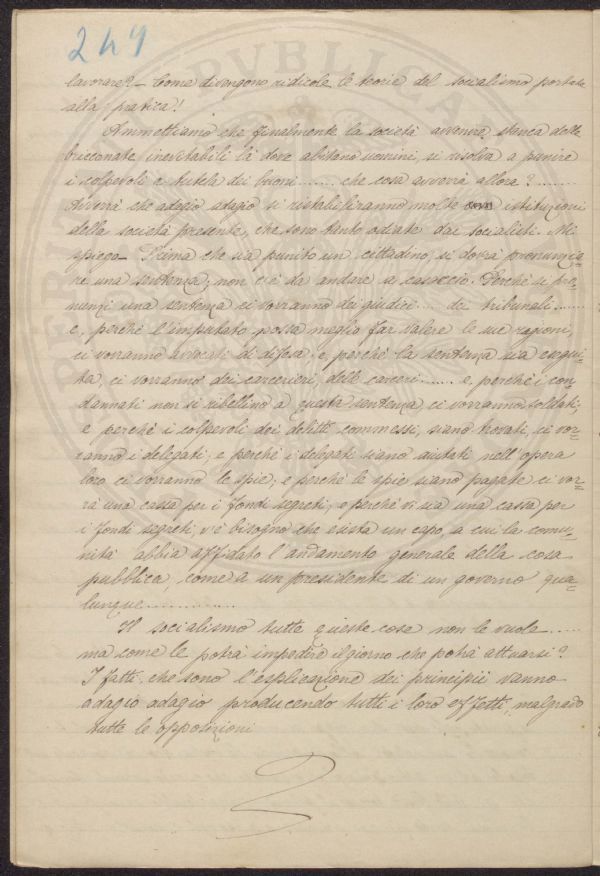 249
lavorare? – Come divengono ridicole le teorie del socialismo portate
alla pratica!!
Ammettiamo che finalmente la società avvenire, stanca delle
bricconate inevitabili là dove abitano uomini, si risolva a punire
i colpevoli a tutela dei buoni....... che cosa avverrà allora? .......
Avverrà che adagio adagio si ristabiliranno molte istituzioni
della società presente, che sono tanto odiate dai socialisti. Mi
spiego – Prima che sia punito un cittadino, si dovrà pronunzia-
re una sentenza; non c'è da andare a casaccio. Perchè si pro-
nunzi una sentenza ci vorranno dei giudici.... dei tribunali.......
e, perchè l'imputato possa meglio far valere le sue ragioni,
ci vorranno avvocati di difesa; e, perchè la sentenza sia esegui-
ta, ci vorranno dei carcerieri, delle carceri....... e, perchè i con-
dannati non si ribellino a questa sentenza, ci vorranno soldati;
e perchè i colpevoli dei delitti commessi, siano trovati, ci vor-
ranno i delegati; e perchè i delegati siano aiutati nell'opera
loro ci vorranno le spie; e perchè le spie siano pagate ci vor-
rà una cassa per i fondi segreti; e perchè vi sia una cassa per
i fondi segreti, v'è bisogno che esista un capo, a cui la comu-
nità abbia affidato l'andamento generale della cosa
pubblica, come a un presidente di un governo qua-
lunque............
Il socialismo tutte queste cose non le vuole......
ma come le potrà impedire il giorno che potrà attuarsi?
I fatti, che sono l'esplicazione dei principii vanno
adagio adagio producendo tutti i loro effetti, malgrado
tutte le opposizioni